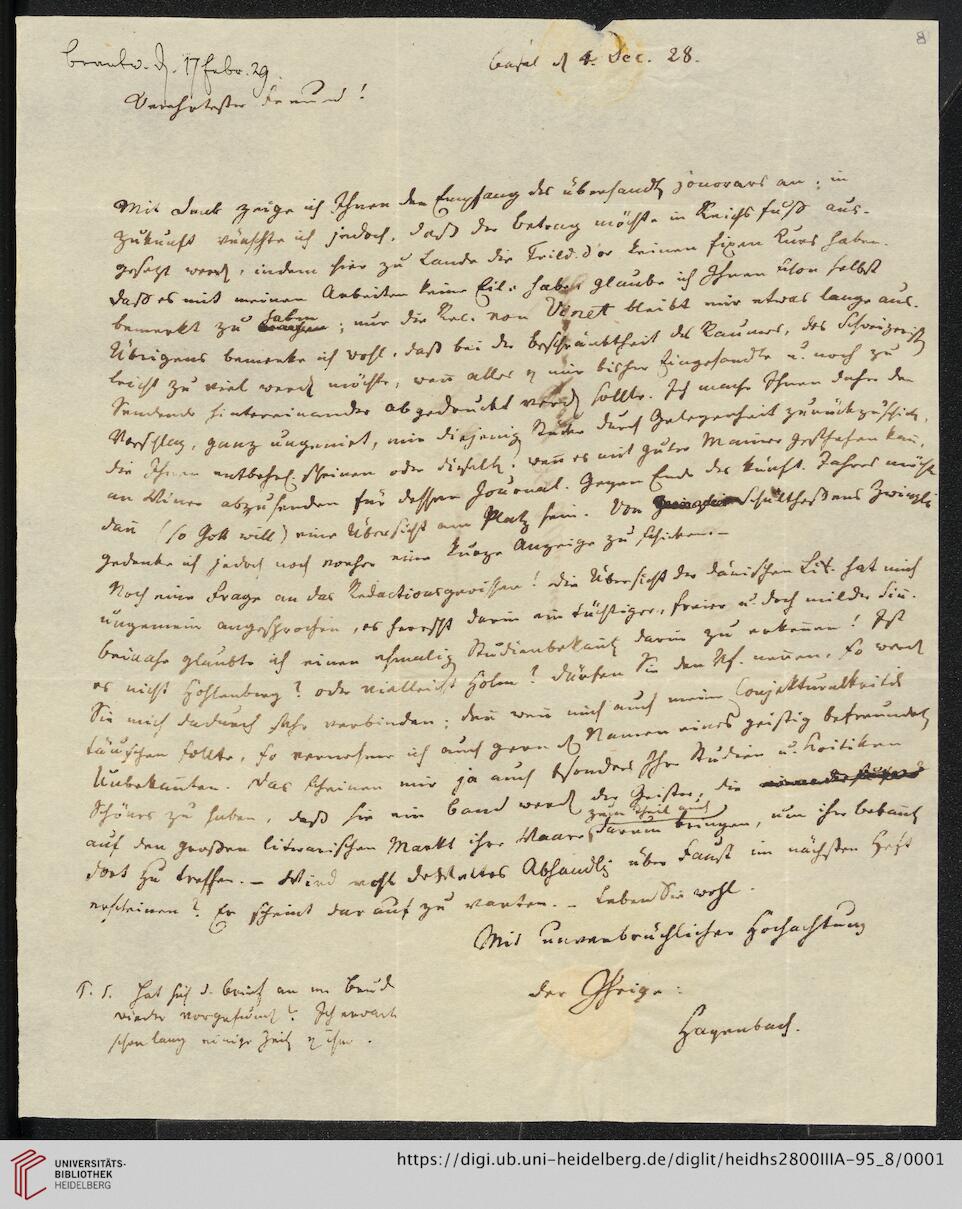 8
beantw. d. 17 Febr. 29.
Basel d 4. Dec. 28.
Verehrtester Freund!
Mit Dank zeige ich Ihnen den Empfang des übersandt Honorars an; in
Zukunft wünschte ich jedoch, daß der Betrag möchte in Reichsfuß aus-
gesetzt werd, indem hier zu Lande die Fried.d'or keinen fixen Kurs haben.
Daß es mit meinen Arbeiten keine Eile habe, glaube ich Ihnen schon selbst
bemerkt zu haben; nur die Rec. von Vinet bleibt mir etwas lange aus.
Übrigens bemerke ich wohl, daß bei der Beschränktheit des Raumes, des Schweizerisch
leicht zu viel werd möchte, wenn alles v mir bisher Eingesandte u. noch zu
Sendende hintereinander abgedruckt werd sollte. Ich mache Ihnen daher den
Vorschlag, ganz ungenirt, mir diejenig Stücke durch Gelegenheit zurückzuschick,
die Ihnen entbehrl. scheinen oder dieselb, wenn es mit guter Manier geschehen kann,
an Winer abzusenden für dessen Journal. Gegen Ende des künft. Jahres möchte
dann (so Gott will) eine Übersicht am Platz sein. Von Schultheßens Zwingli
gedenke ich jedoch noch vorher eine kurze Anzeige zu schicken. –
Noch eine Frage an das Redactionsgewissen! Die Übersicht der dänischen Lit. hat mich
ungemein angesprochen, es herrscht darin ein tüchtiger, freier u. doch milder Sinn.
Beinahe glaubte ich einen ehmalig Studienbekannt darin zu erkennen! Ist
es nicht Hohlenberg? oder vielleicht Holm? Dürfen Sie den Vf. nennen, so werd
Sie mich dadurch sehr verbinden; denn wenn mich auch meine Conjekturalkritik
täuschen sollte, so vernehme ich auch gern d Namen eines geistig befreundet
Unbekannten. Das scheinen mir ja auch besonders Ihre Studien u. Kritiken
Schönes zu haben, daß sie ein Band werd der Geister, die
auf den großen literarischen Markt ihre Waare zum Theil auch darum bringen, um ihre Bekannt
dort zu treffen. – Wird wohl deWettes Abhandlg über Faust im nächsten Heft
erscheinen? Er scheint darauf zu warten. – Leben Sie wohl.
Mit unverbrüchlicher Hochachtung
der Ihrige:
Hagenbach.
P. S. Hat sich d. Brief an
wieder vorgefund? Ich erwart
schon lang einige Zeil v ihm.
UNIVERSITÄTS-
BIBLIOTHEK
HEIDELBERG
https://digi.ub.uni-heidelberg.de/diglit/heidhs2800IIIA-95_8/0001